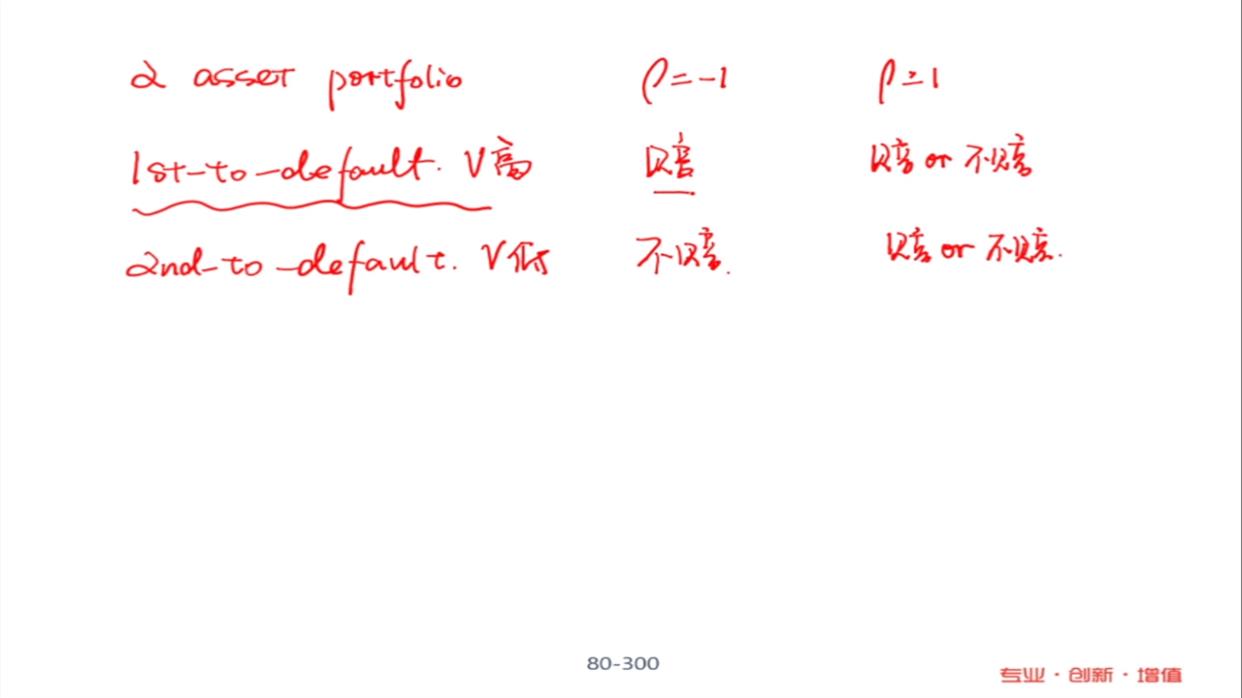 2 asset portfolio ρ=-1 ρ=1
1st-to-default. V高 赔 赔 or 不赔
2nd-to-default. V低 不赔. 赔 or 不赔.
80-300
专业·创新·增值